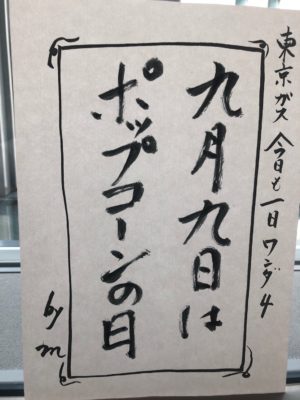 東京ガス 今日も一日ワンダ4
九月九日は
ポップコーンの日
by m